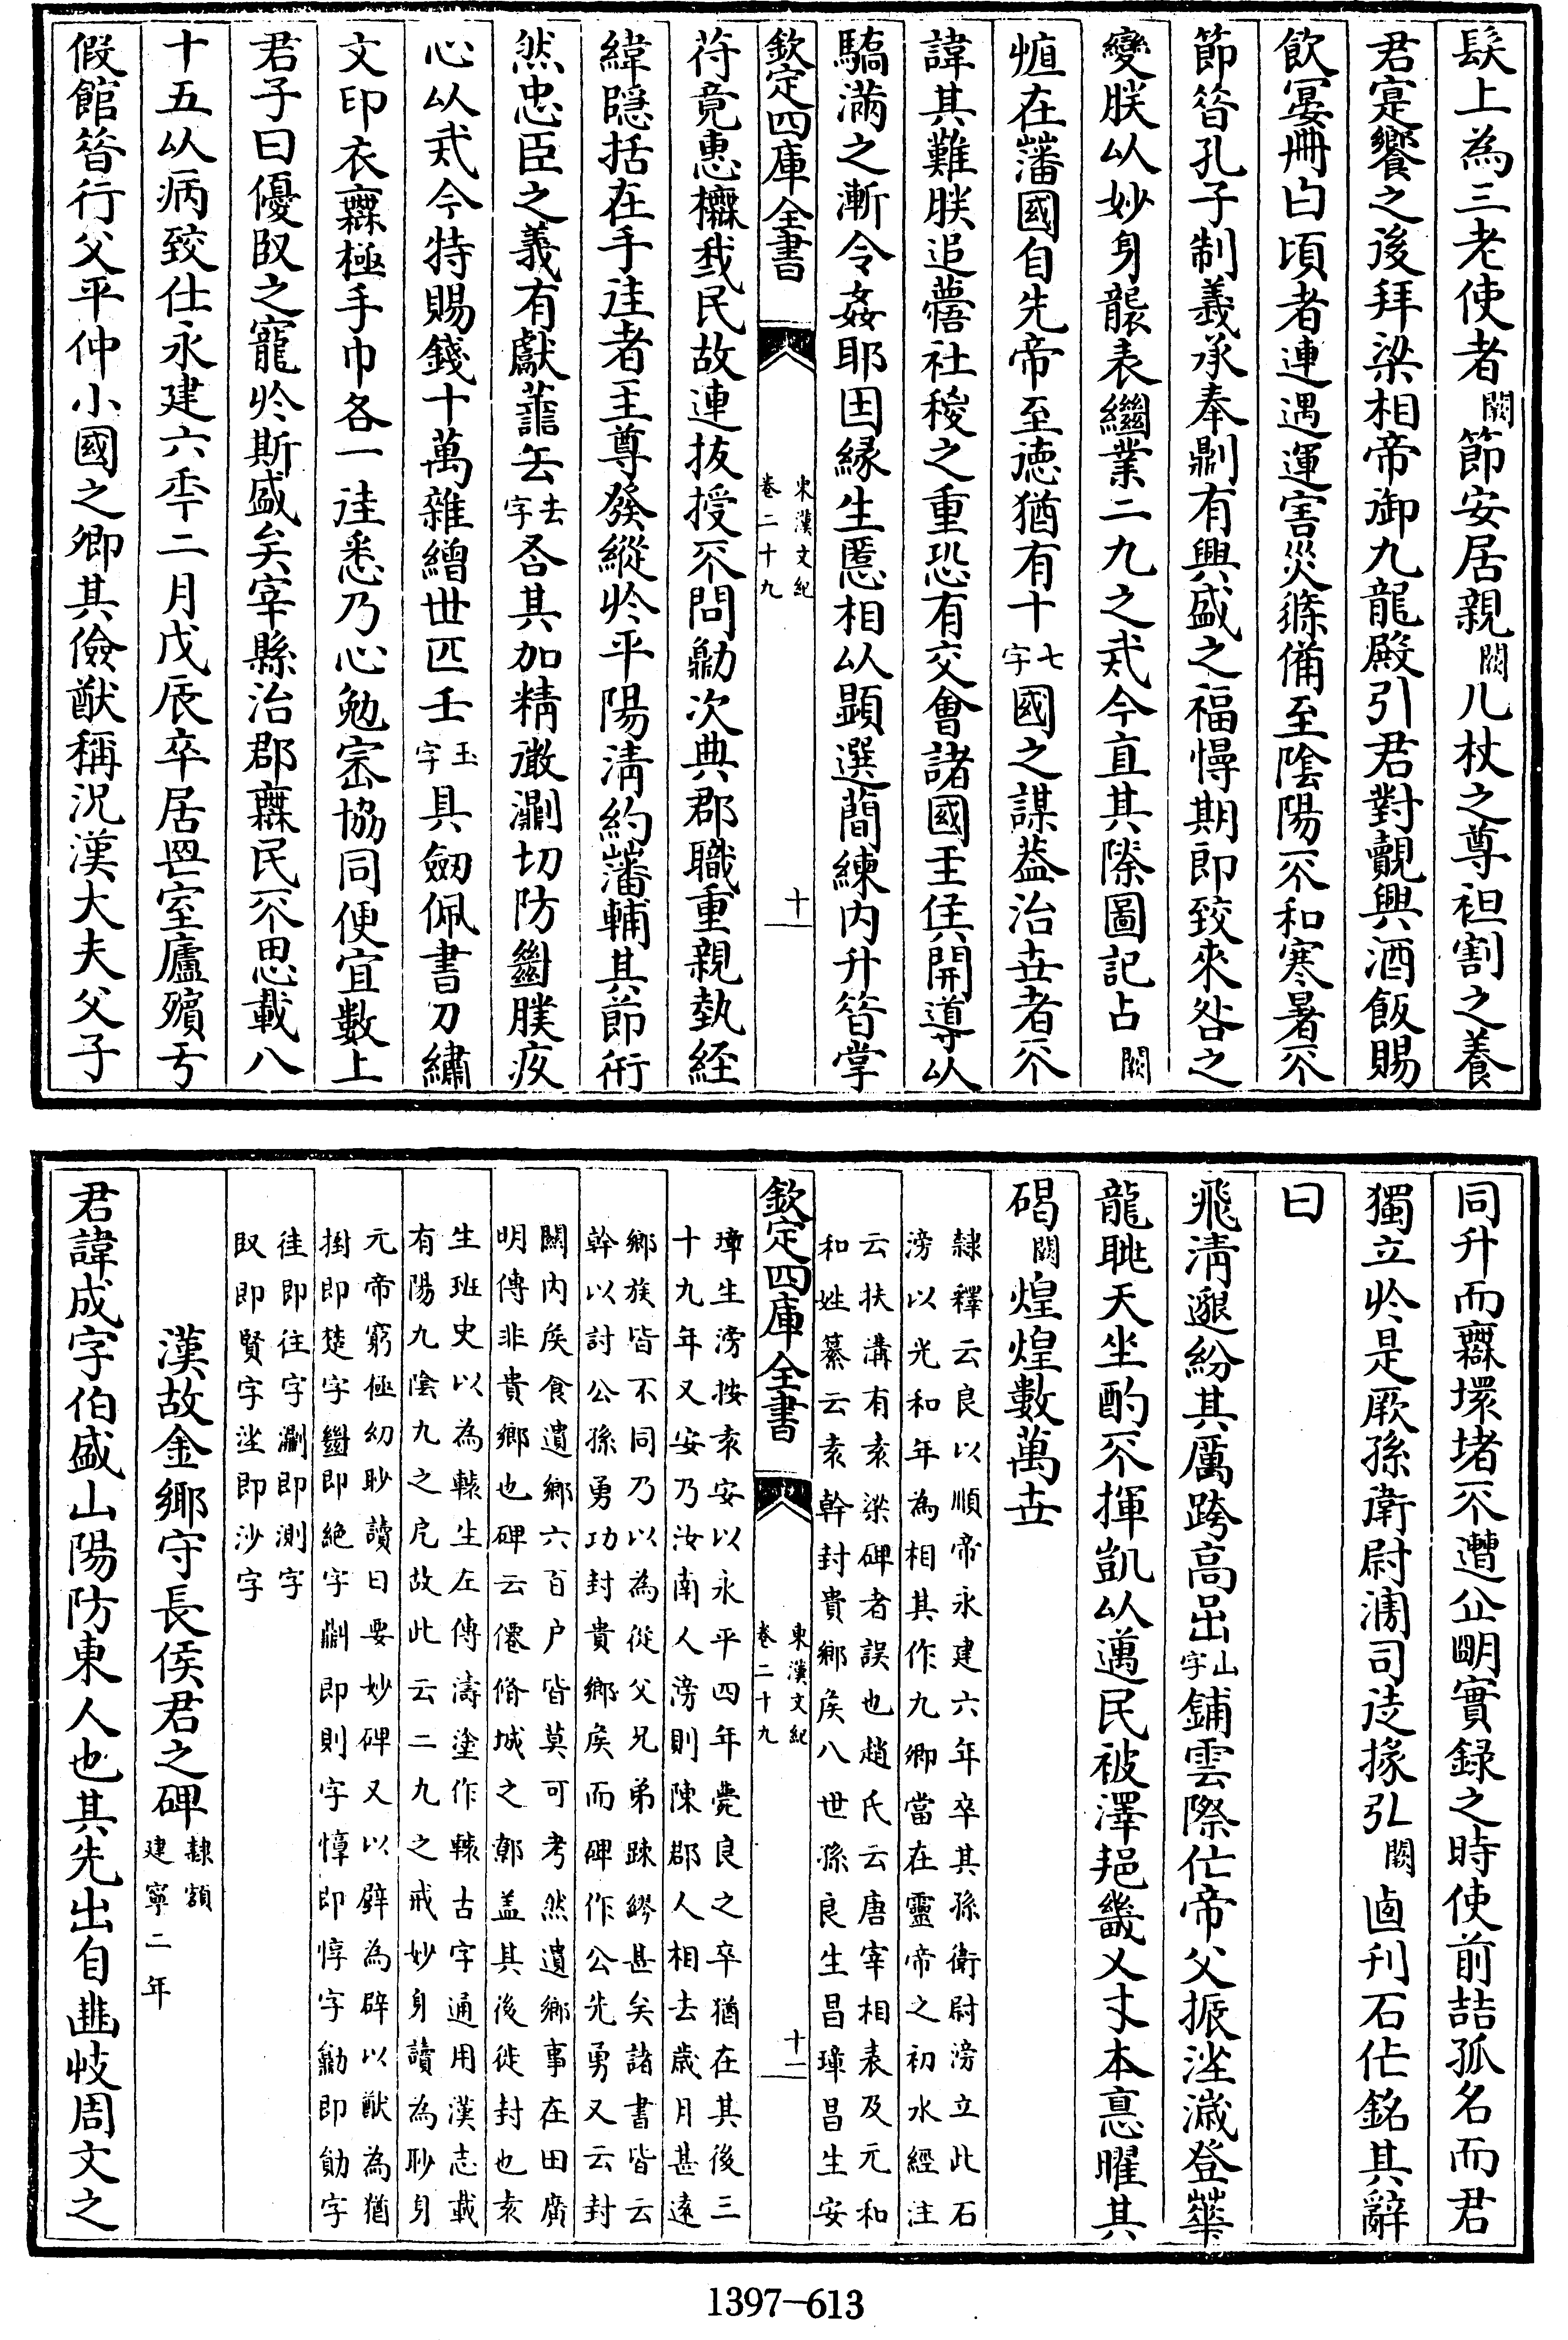 鬂上為三老使者闕節安居親闕几杖之尊袒割之養
君寔饗之後拜梁相帝御九龍殿引君對覿興酒飯賜
飲宴冊曰頃者連遇運害災䌓備至陰陽不和寒暑不
節昝孔子制義承奉鼎有興盛之福㥲期即致來咎之
變朕以妙身襲表繼業二九之戒今直其際圖記占闕
恒在藩國自先帝至徳猶有十七字國之謀葢治卋者不
諱其難朕追蓦社稷之重恐有交會諸國王侯開導以
驕滿之漸令姦耶因縁生慝相以顕選蕳練内升昝掌
符竟惠櫾我民故連抜授不問勳次典郡職重親埶經
緯隠括在手迬者王尊發縱於平陽清約藩輔其節術
然忠臣之義有獻蘁厺去字吝其加精漖灁切防㡭朥疾
心以戒今特賜錢十萬雜繒丗匹壬玉字具劒佩書刀繡
文印衣橆極手巾各一迬悉乃心勉宻協同便宜數上
君子曰優臤之寵於斯盛矣宰縣治郡橆民不思載八
十五以病致仕永建六年二月戊辰卒居罒室廬殯于
假館昝行父平仲小國之卿其儉猷稱況漢大夫父子
欽定四庫全書
東漢文紀
卷二十九
十一
同升而橆壞堵不遭㐀朙實録之時使前喆孤名而君
獨立於是厥孫衛尉滂司徒掾弘闕卣刋石㐰銘其辭
曰
飛清邈紛其厲跨高岀山字鋪雲際㐰帝父振㳘濊登華
龍眺天坐酌不揮凱以邁民被澤㧞畿乂丰本悳曜其
碣闕煌煌數萬卋
隸釋云良以順帝永建六年卒其孫衛尉滂立此石
滂以光和年為相其作九卿當在靈帝之初水經注
云扶溝有袁梁碑者誤也趙氏云唐宰相表及元和
和姓纂云袁幹封貴鄉矦八世孫良生昌璋昌生安
璋生滂按袁安以永平四年薨良之卒猶在其後三
十九年又安乃汝南人滂則陳郡人相去歲月甚遠
鄉族皆不同乃以為從父兄弟踈繆甚矣諸書皆云
幹以討公孫勇功封貴鄉矦而碑作公先勇又云封
關内矦食遺鄉六百户皆莫可考然遺鄉事在田廣
明傳非貴鄉也碑云僊脩城之鄣盖其後徙封也袁
生班史以為轅生左傳濤塗作轅古字通用漢志載
有陽九陰九之戹故此云二九之戒妙身讀為眇身
元帝窮極㓜眇讀曰要妙碑又以辟為辟以猷為猶
㨶即楚字㡭即絶字鼎即則字㥲即惇字勳即勛字
迬即往字灁即測字
臤即賢字㳘即沙字
漢故金鄉守長侯君之碑隷額建寧二年
君諱成字伯盛山陽防東人也其先出自豳岐周文之
欽定四庫全書
東漢文紀
卷二十九
十二
1397-613